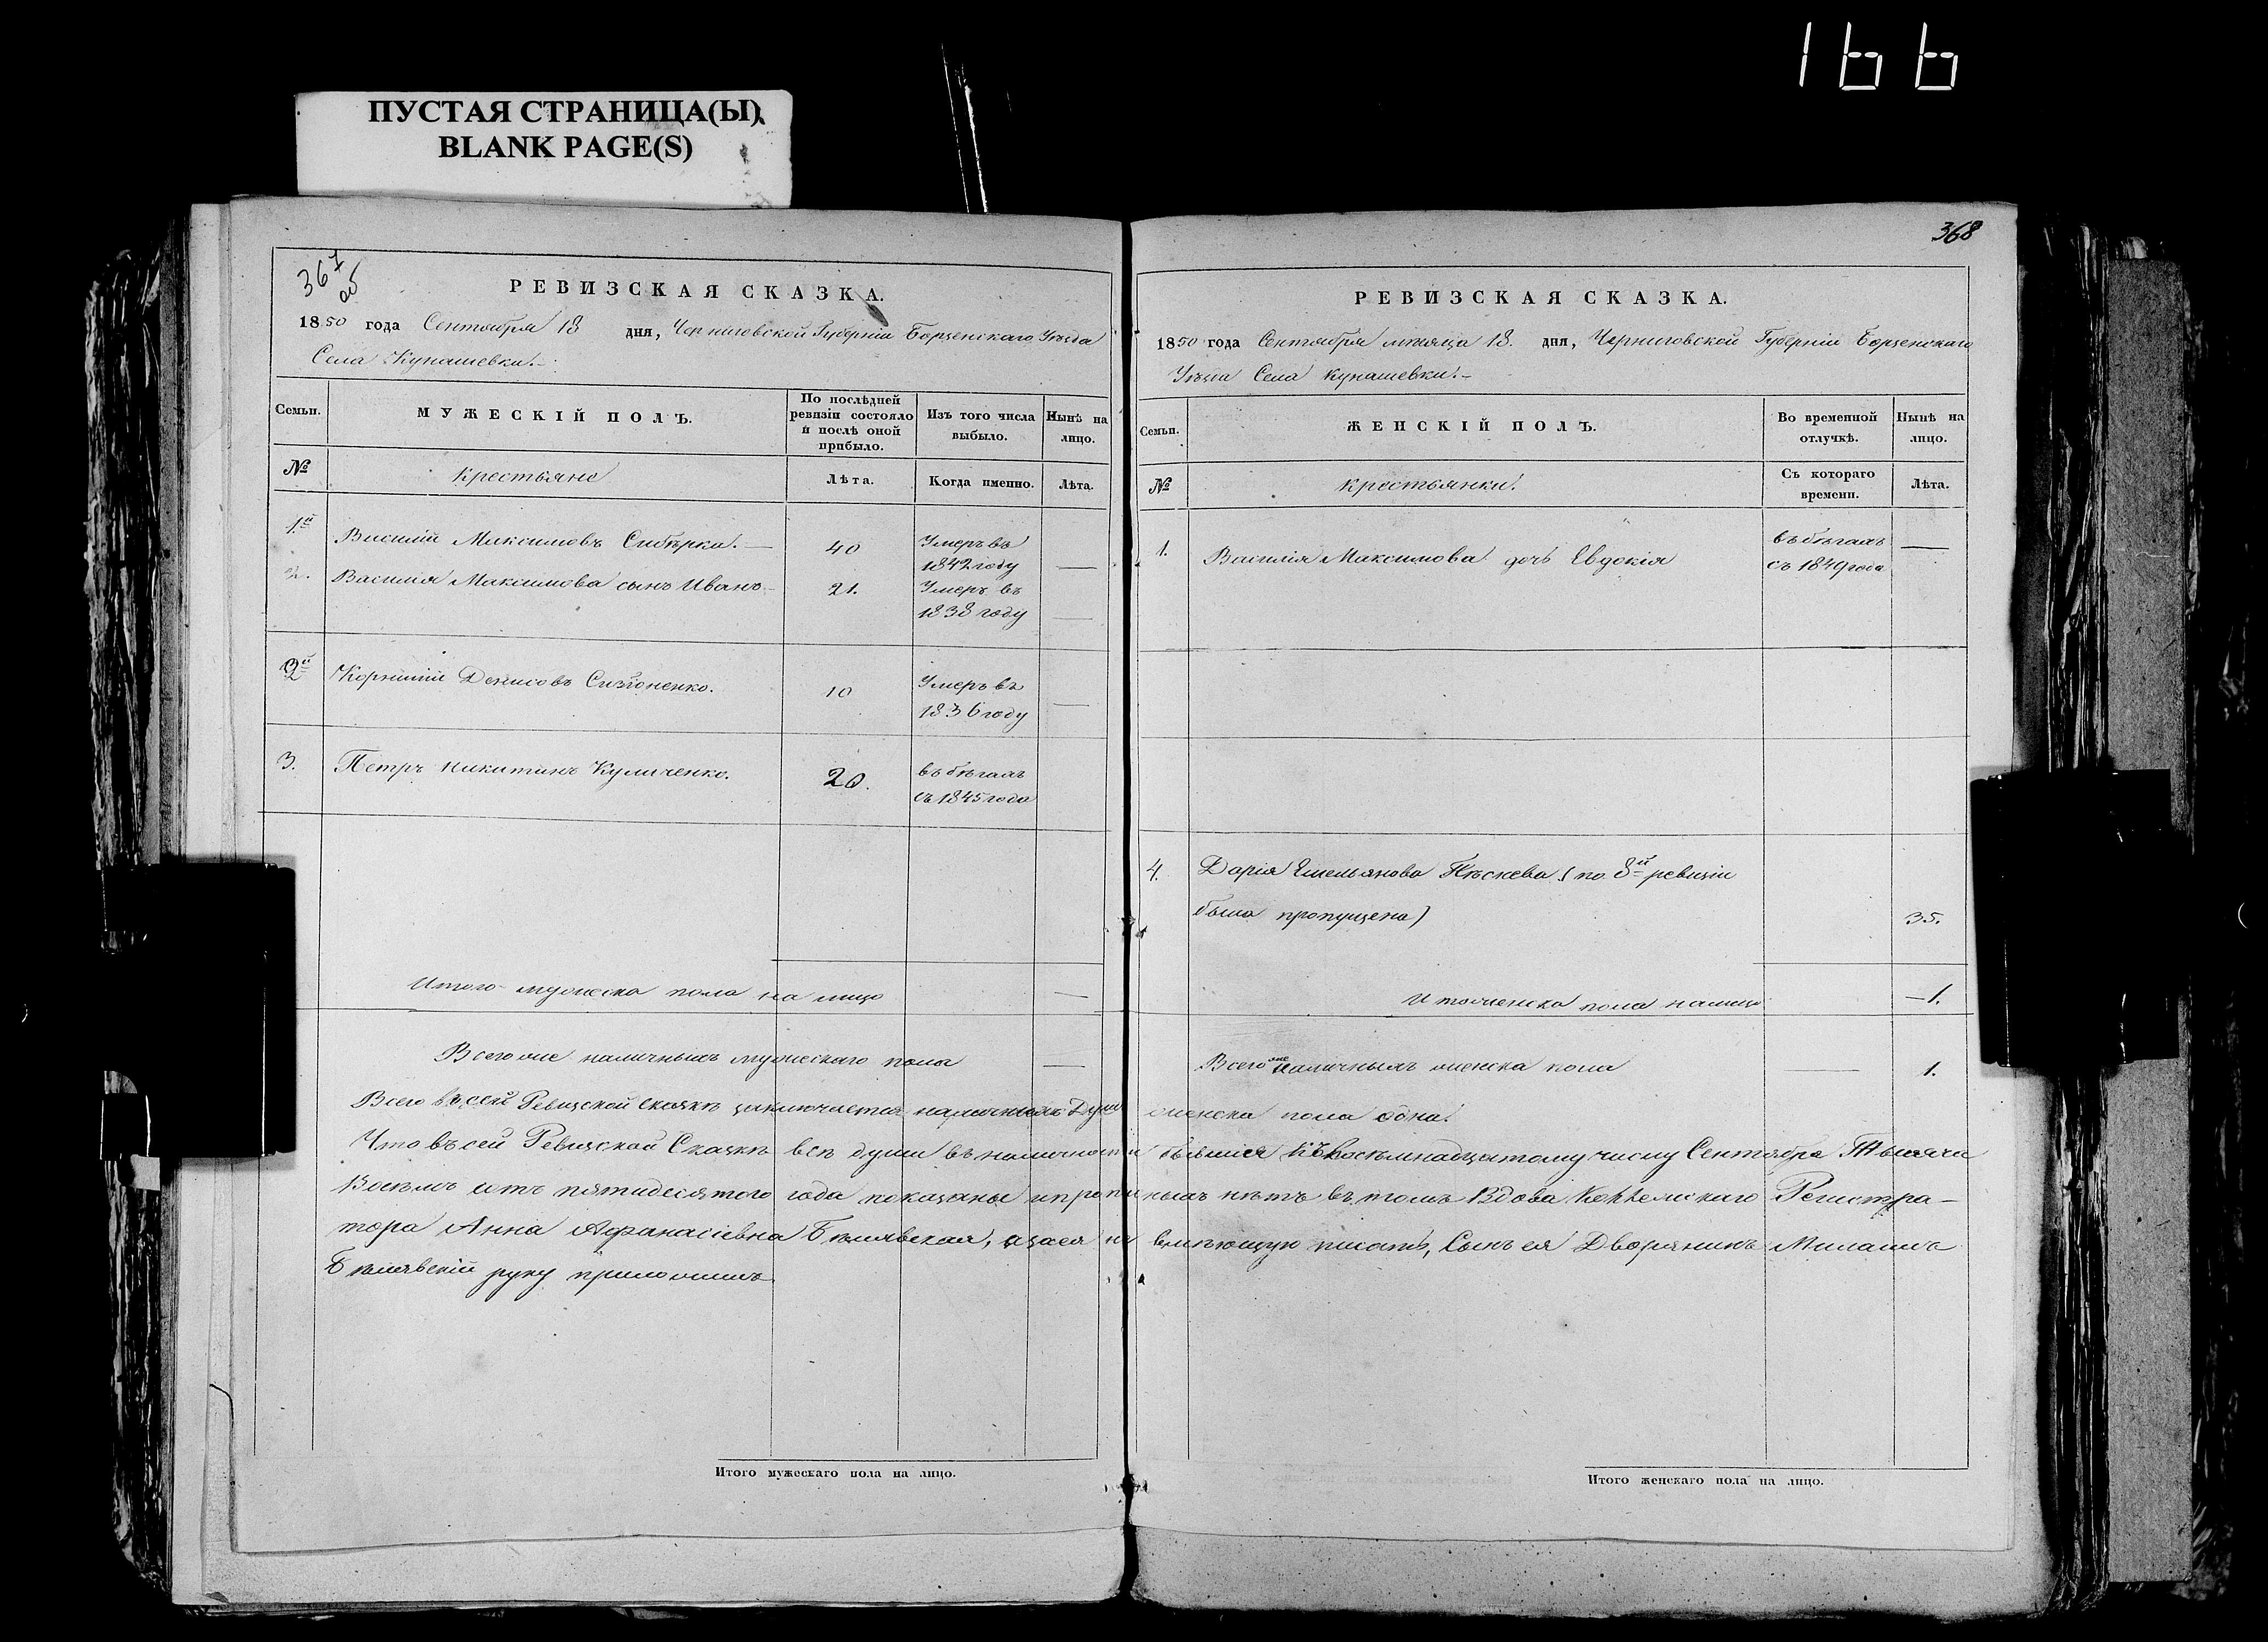 166
ПУСТАЯ СТРАНИЦА(Ы)
BLANK PAGE(S)
367
об
РЕВИЗСКАЯ СКАЗКА.
1850 года Сентября 18 дня, Черниговской Губерніи Борзенскаго Уѣзда
Села Кунашевки.
Семьи.
МУЖЕСКІЙ ПОЛЪ.
По послѣдней ревизіи состояло и послѣ оной прибыло.
Изъ того числа выбыло.
Нынѣ на лицо.
№
Крестьяне
Лѣта.
Когда именно.
Лѣта.
1й Василій Максимовъ 40 Умеръ въ
1842 году —
2. Василія Максимова сынъ Иванъ 21. Умеръ въ
1838 году —
2й Корнилій Денисовъ 10 Умеръ въ
1836 году —
3. Петръ Никитинъ Куличенко. 20. въ бѣгахъ
съ 1845 года
Итого мужеска пола на лицо —
Всего же наличныхъ мужескаго пола —
368
РЕВИЗСКАЯ СКАЗКА.
1850 года Сентября мѣсяца 18. дня, Черниговской Губерніи Борзенскаго
Уѣзда Села Кунашевки.
Семьи.
ЖЕНСКІЙ ПОЛЪ.
Во временной отлучкѣ.
Нынѣ на лицо.
№
Крестьянки.
Съ котораго времени.
Лѣта.
1. Василія Максимова дочь Евдокія въ бѣгахъ —
съ 1849 года
4. Дарія Емельянова (по 8й ревизіи
была пропущена) 35.
Итого женска пола налицо —1.
Всего же наличныхъ женска пола — 1.
Всего въ сей Ревизской сказкѣ заключается наличныхъ Душъ женска пола одна.
Что въ сей Ревизской Сказкѣ всѣ души въ наличности бывшія къ восемнадцатому числу Сентября Тысяча
Восемь сотъ пятидесятого года показаны и прописныхъ нѣтъ въ томъ Вдова Коллежскаго Регистра-
тора Анна Афанасіевна Бѣлявская, а за ея не умѣющую писать, Сынъ ея Дворянинъ
Бѣлявскій руку приложилъ
Итого мужескаго пола на лицо.
Итого женскаго пола на лицо.